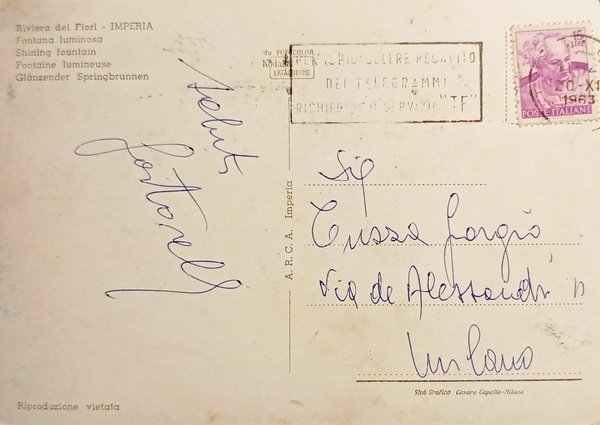 Riviera dei Fiori - IMPERIA
Fontana luminosa
Shining fountain
Fontaine lumineuse
Glänzender Springbrunnen
da FOTOCOLOR
Kodak
EKTACHROME
PER IL PIU' CELERE RECAPITO
DEI TELEGRAMMI
SERVIZIO "TF"
15
LIRE
20-XI
1963
POSTE ITALIANE
saluti
A.R.C.A. Imperia
Sig
Cussa Giorgio
Via de Alessandri
Milano
Stab Grafico Cesare Capello-Milano
Riproduzione vietata